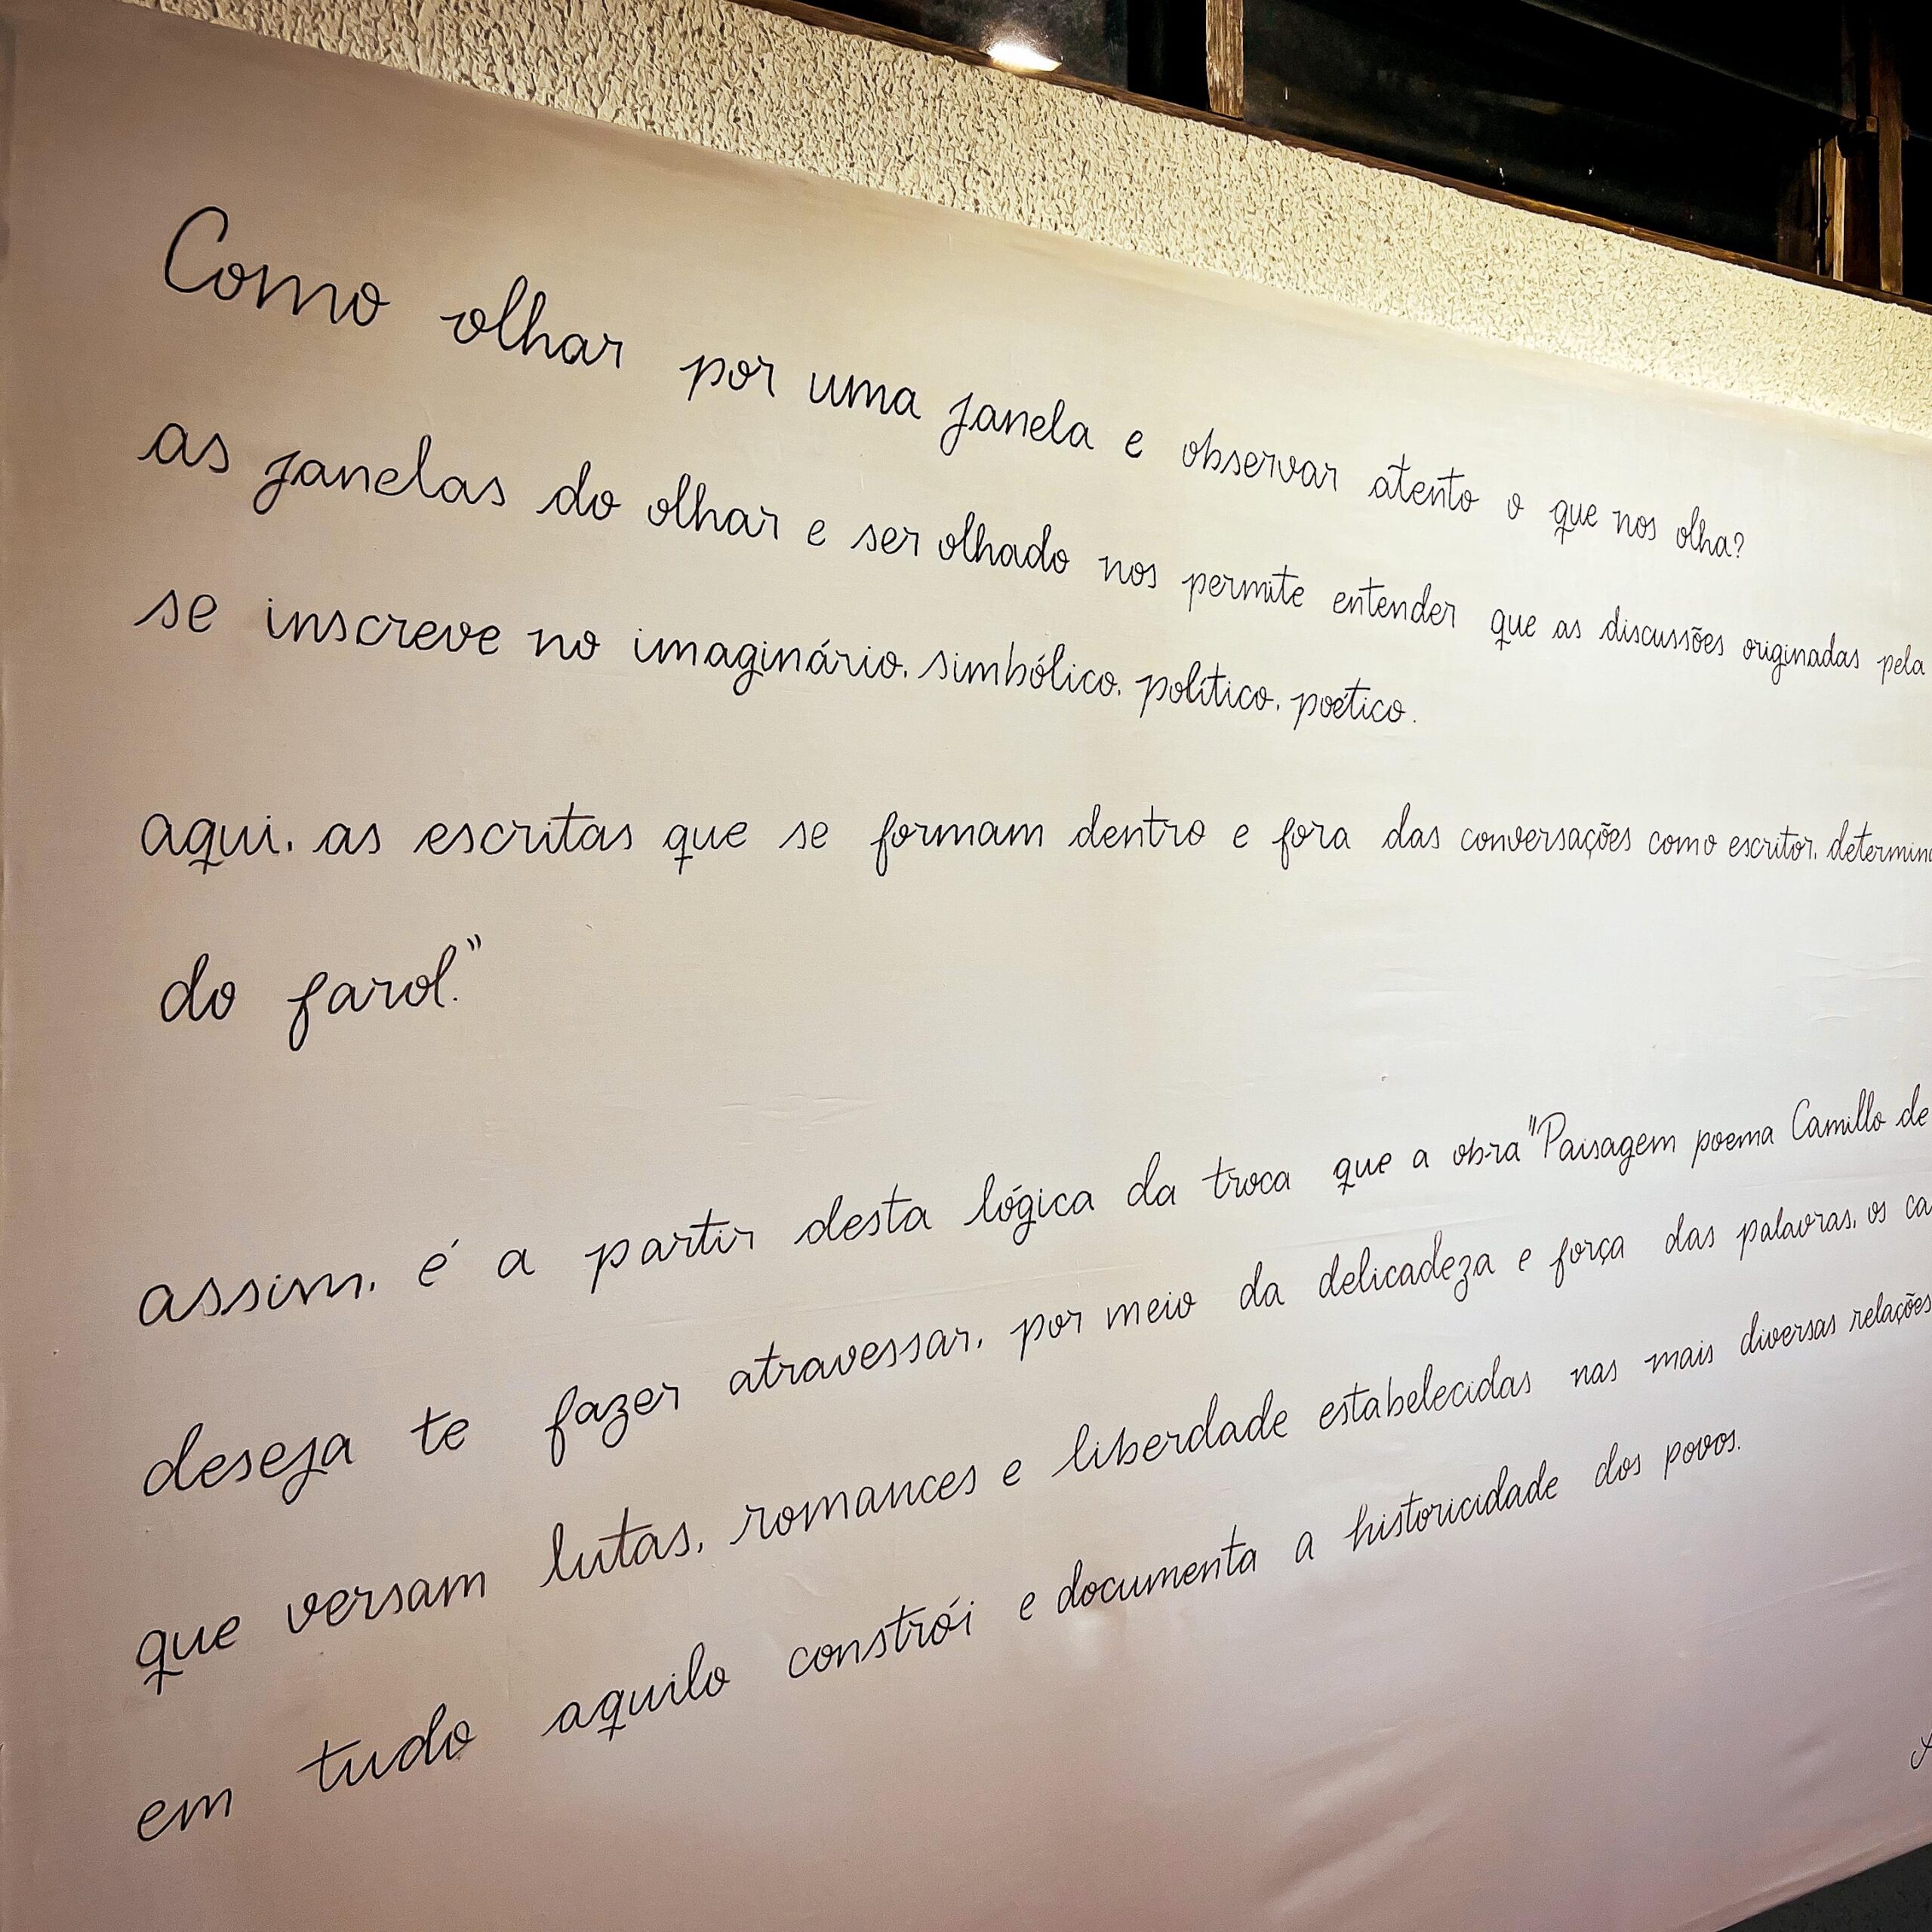 Como olhar por uma janela e observar atento o que nos olha?
as janelas do olhar e ser olhado nos permite entender que as discussões originadas pela
se inscreve no imaginário, simbólico, político, poético.
aqui, as escritas que se formam dentro e fora das conversações como escritor,
do farol."
assim, é a partir desta lógica da troca que a obra "Paisagem poema Camillo de
deseja te fazer atravessar, por meio da delicadeza e força das palavras, os
que versam lutas, romances e liberdade estabelecidas nas mais diversas relações
em tudo aquilo constrói e documenta a historicidade dos povos.